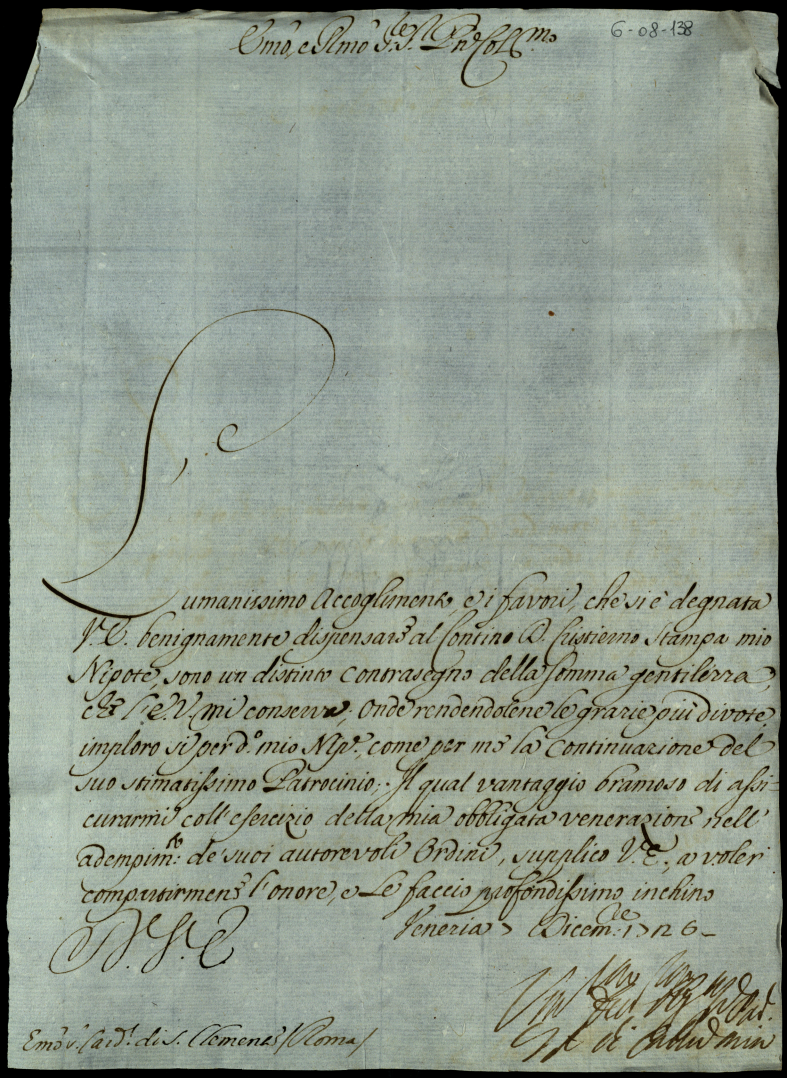 6-08-138
Emo, e Rmo Sre Pne Colmo
L'umanissimo Accoglimento, e i favori, che si è degnata
V. E. benignamente dispensare al Contino D. Cristierno Stampa mio
Nipote, sono un distinto contrasegno della somma gentilezza,
che l'E. V. mi conserva; Onde rendendolene le grazie più divote,
imploro sì per do mio Nipe, come per me la continuazione del
suo stimatissimo Patrocinio; Il qual vantaggio bramoso di assi-
curarmi coll'esercizio della mia obbligata venerazione nell'
adempimto de' suoi autorevoli Ordini, supplico V. E., a voler
compartirmene l'onore, e Le faccio profondissimo inchino
Venezia 7 Dicembre 1726
Di V. E.
Emo S. Card. di S. Clemente (Roma)